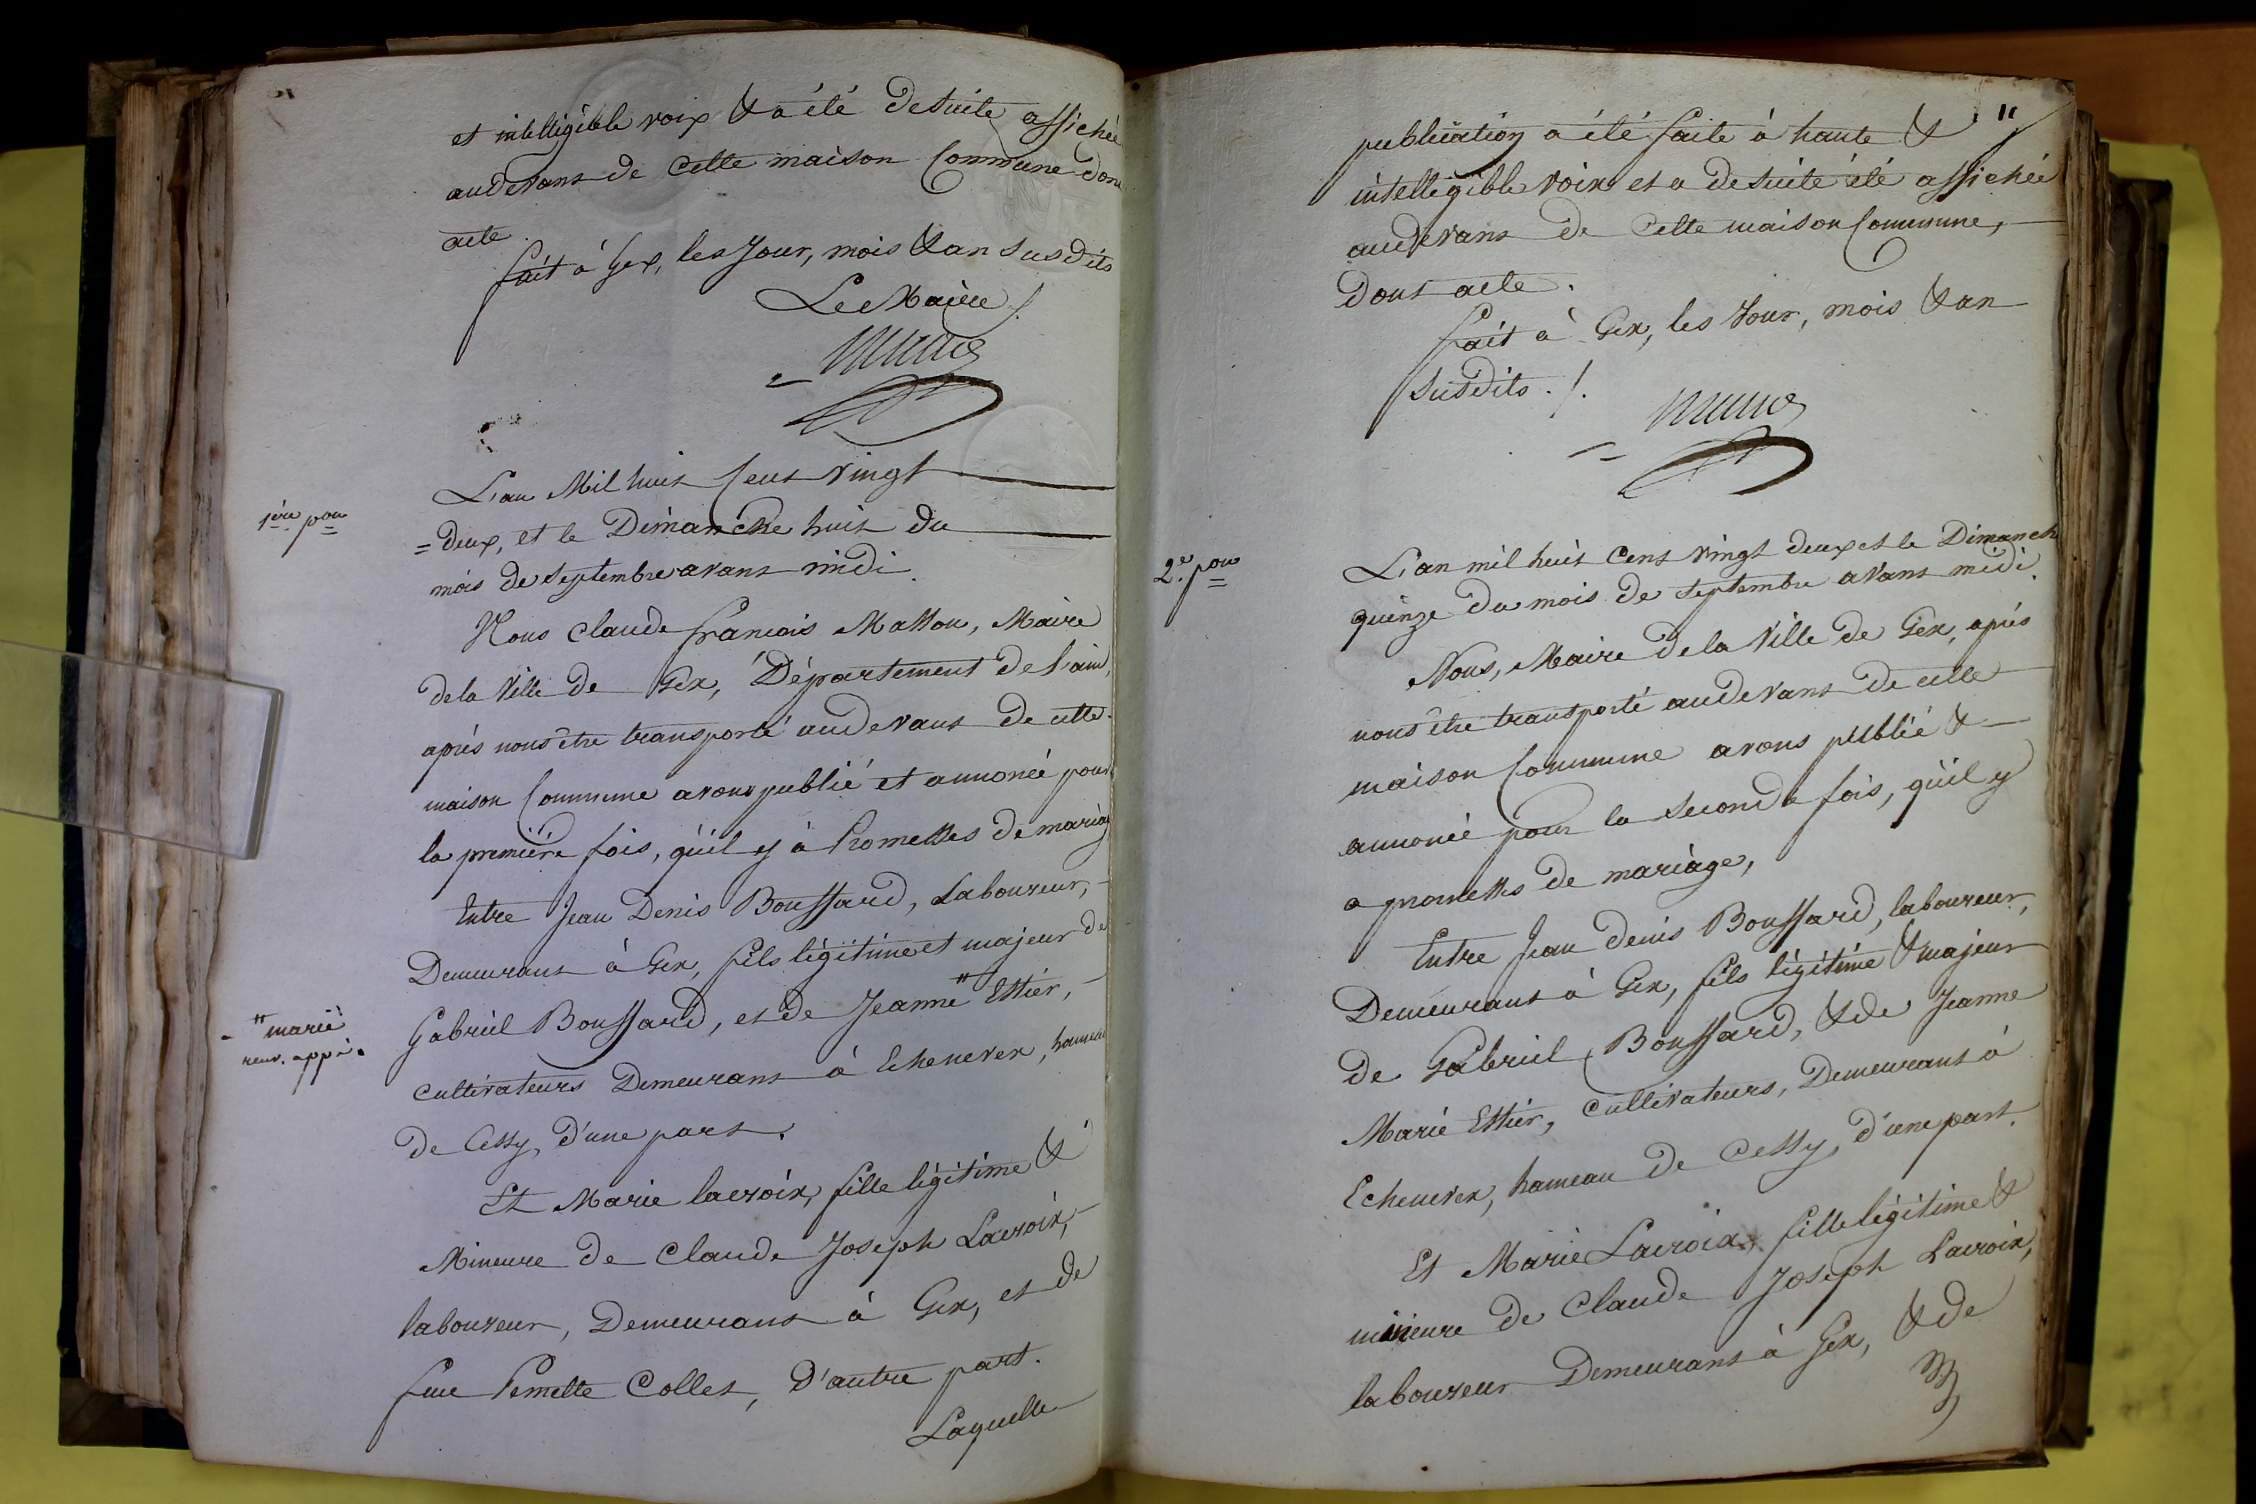 et intelligible voix & a été desuite affichée
audevant de cette maison Commune dont
acte.
fait à Gex, les Jour, mois & an susdits
Le Maire /.
1ère pon
L'an Mil huit Cent vingt
=deux, et le Dimanche huit du
mois de septembre avant midi.
Nous Claude françois Matton, Maire
de la Ville de Gex, Département de l'ain,
après nous être transporté audevant de cette
maison Commune avons publié et annoncé pour
la première fois, qu'il y à Promesses de mariage
Entre Jean Denis Boussard, Laboureur,
Demeurant à Gex, fils légitime et majeur de
Gabriel Boussard, et de Jeanne " Ettier,
" marie
renv. appé.
cultivateurs Demeurant à Echenevex, hameau
de Cessy, d'une part.
Et Marie lacroix, fille légitime &
Mineure de Claude Joseph Lacroix,
laboureur, Demeurant à Gex, et de
feue Pernette Collet, D'autre part.
Laquelle
11
publication a été faite à haute &
intelligible voix et a desuite été affichée
audevant de cette maison Commune,
Dont acte.
fait à Gex, les Jour, mois & an
susdits. /.
2e. pon
L'an mil huit Cent vingt deux et le Dimanche
quinze du mois de septembre avant midi.
Nous, Maire de la Ville de Gex, après
nous être transporté audevant de cette
maison Commune avons publié &
annoncé pour la seconde fois, qu'il y
a promesses de mariage,
Entre Jean denis Boussard, laboureur,
Demeurant à Gex, fils légitime & majeur
de Gabriel Boussard, & de Jeanne
Marie Ettier, Cultivateurs, Demeurant à
Echenevex, hameau de Cessy, d'une part.
Et Marie Lacroix, fille légitime &
mineure de Claude Joseph Lacroix,
laboureur Demeurant à Gex, & de